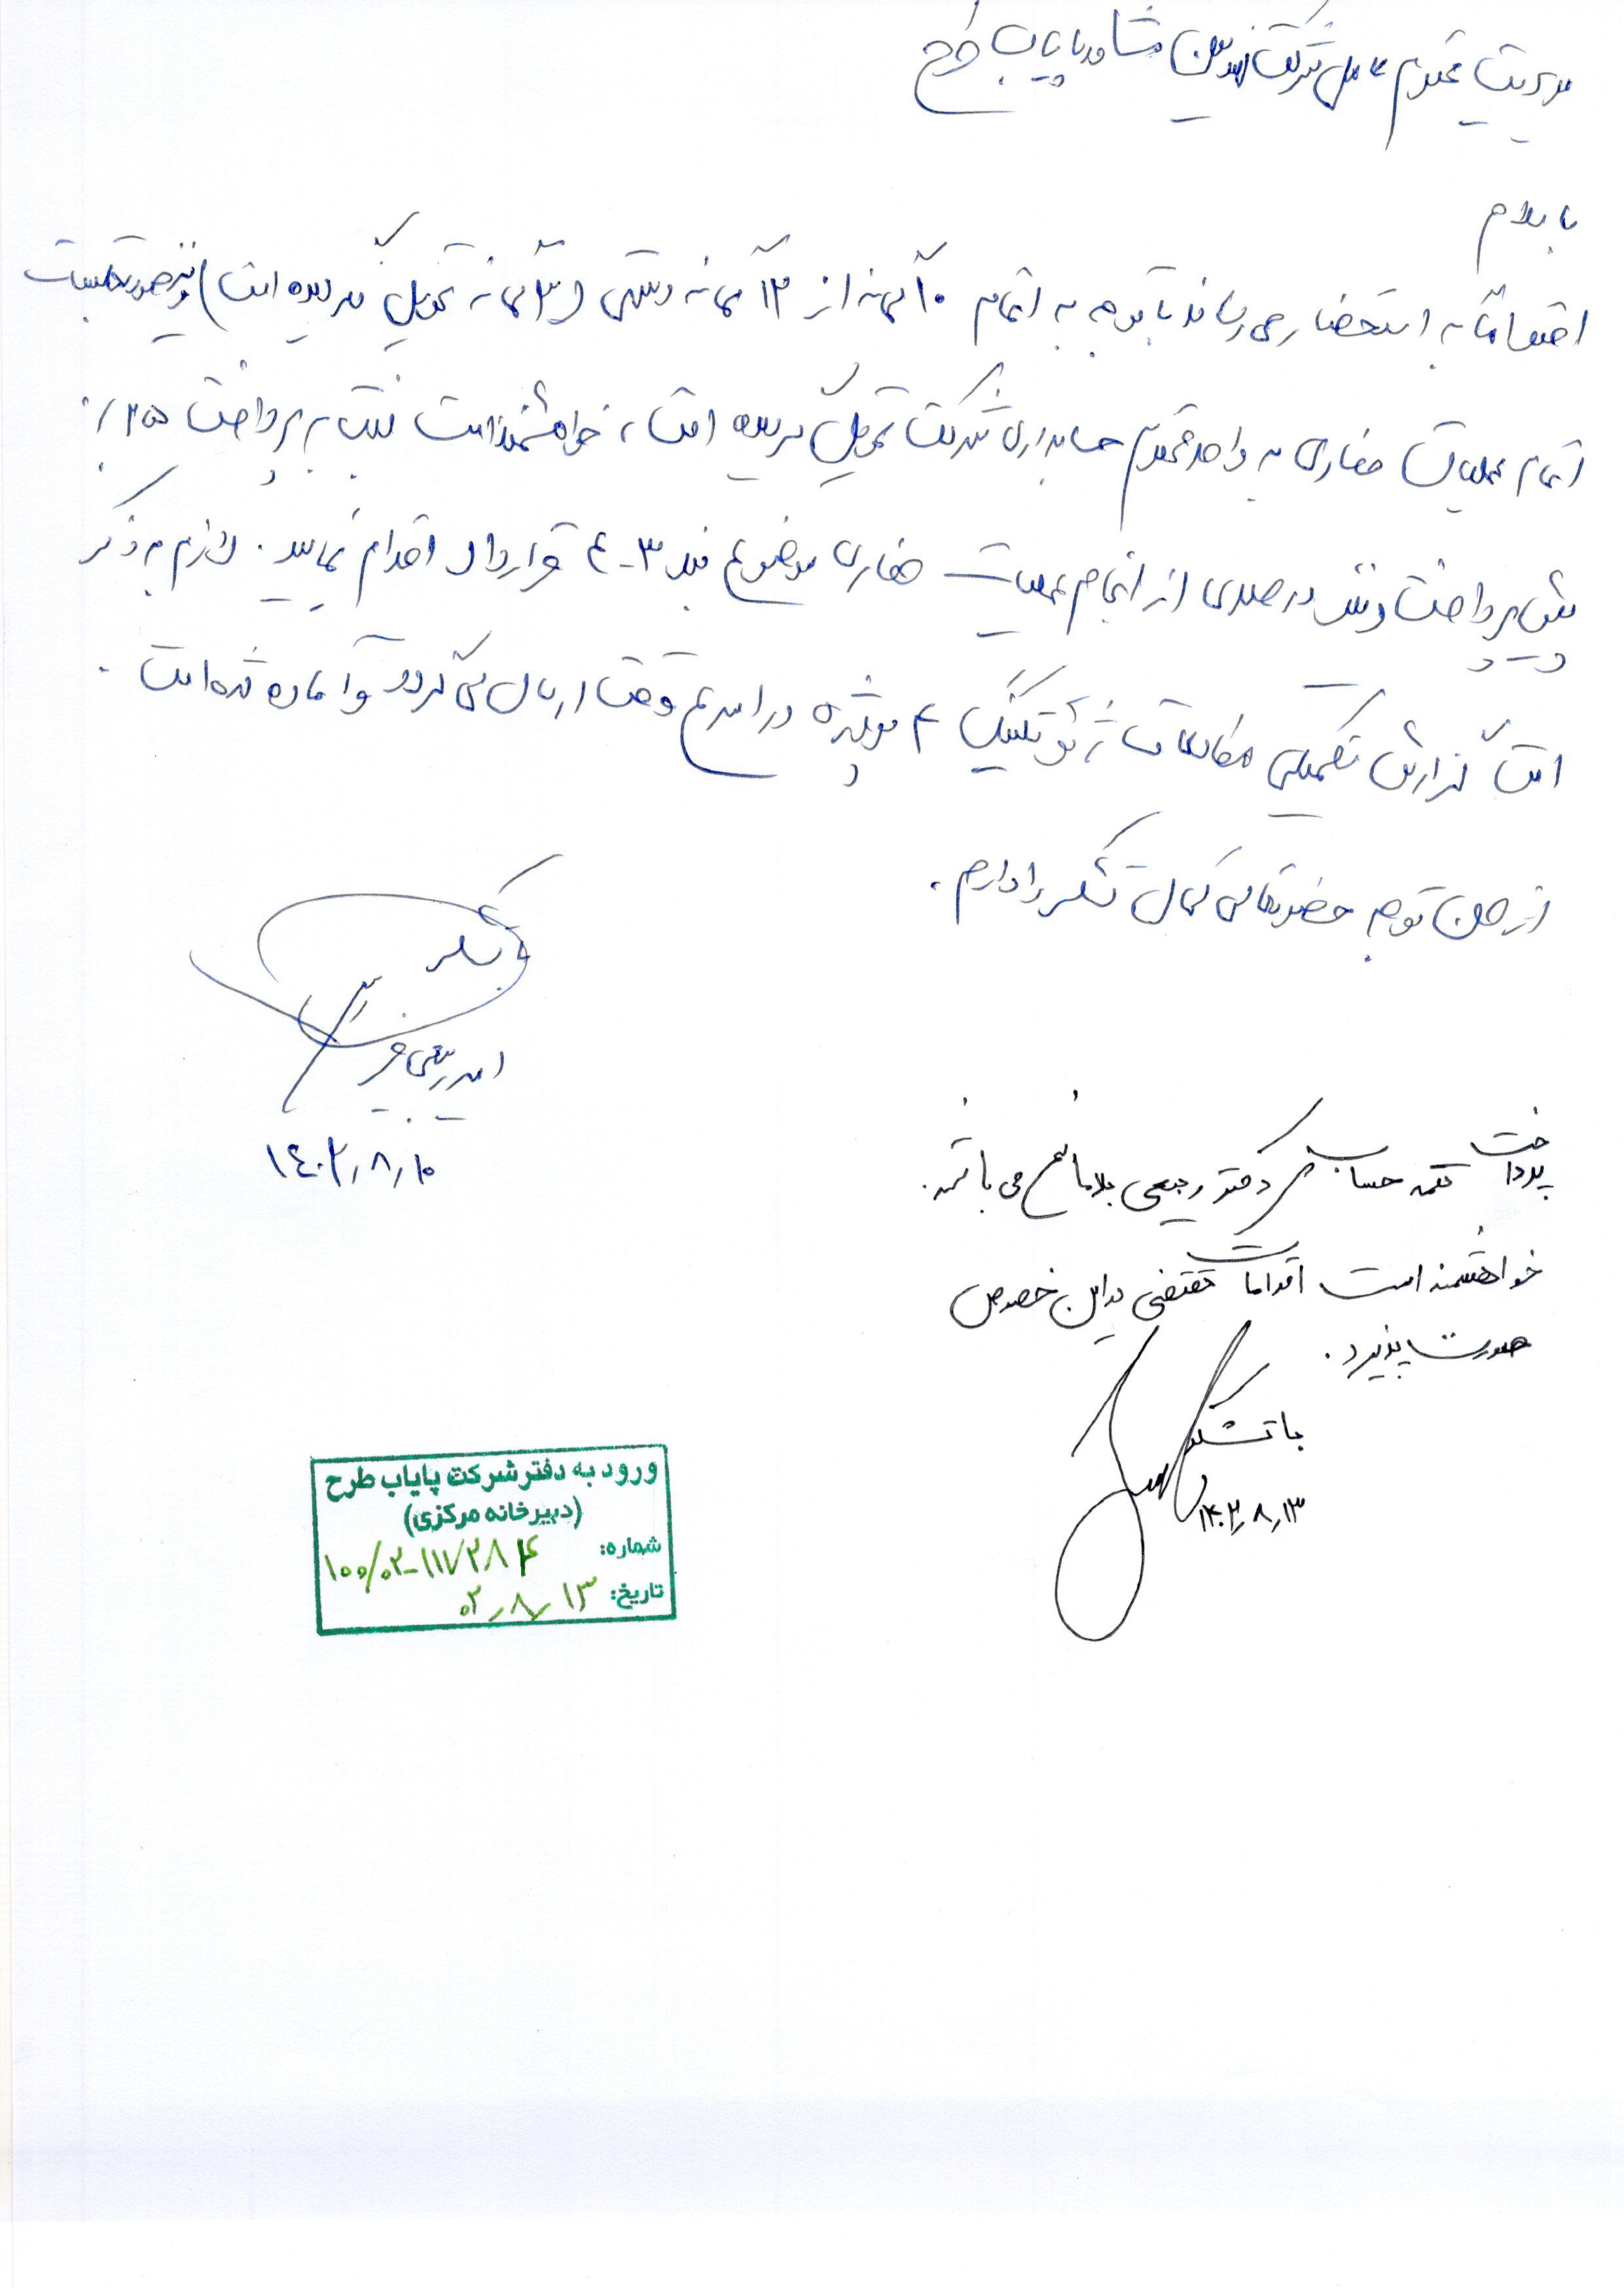 مدیریت محترم عامل شرکت مهندسین مشاور پایاب طرح
با سلام
احتراماً به استحضار می‌رساند با توجه به اتمام ۱۰ گمانه از ۱۳ گمانه دستی (۳ گمانه تحویل نگردیده است) و نیز صورتجلسات
اتمام عملیات حفاری به واحد محترم حسابداری شرکت تحویل گردیده است، خواهشمند است نسبت به پرداخت ۲۵٪
پیش پرداخت و نیز درصدی از انجام عملیات حفاری موضوع بند ۳-۴ قرارداد اقدام نمایید. لازم به ذکر
است گزارش تکمیلی مطالعات ژئوتکنیک ۴ در اسرع وقت ارسال می‌گردد و آماده شده است.
از حسن توجه حضرتعالی کمال تشکر را دارم.
با تشکر
امیر ربیعی
۱۴۰۲/۸/۱۰
پرداخت تتمه حساب دکتر ربیعی بلامانع می باشد.
خواهشمند است اقدامات مقتضی در این خصوص
صورت پذیرد.
با تشکر
۱۴۰۲/۸/۱۳
ورود به دفتر شرکت پایاب طرح
(دبیرخانه مرکزی)
شماره: ۱۰۰/۰۲-۱۱۷۳۸۴
تاریخ: ۰۲/۸/۱۳